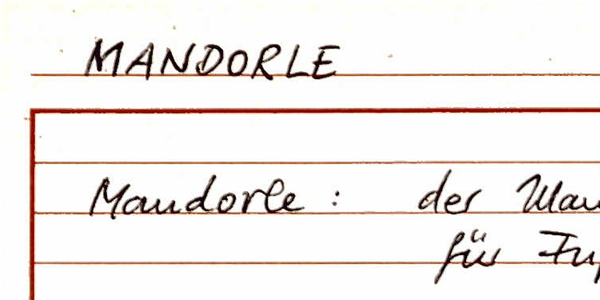 MANDORLE
Mandorle : der
für